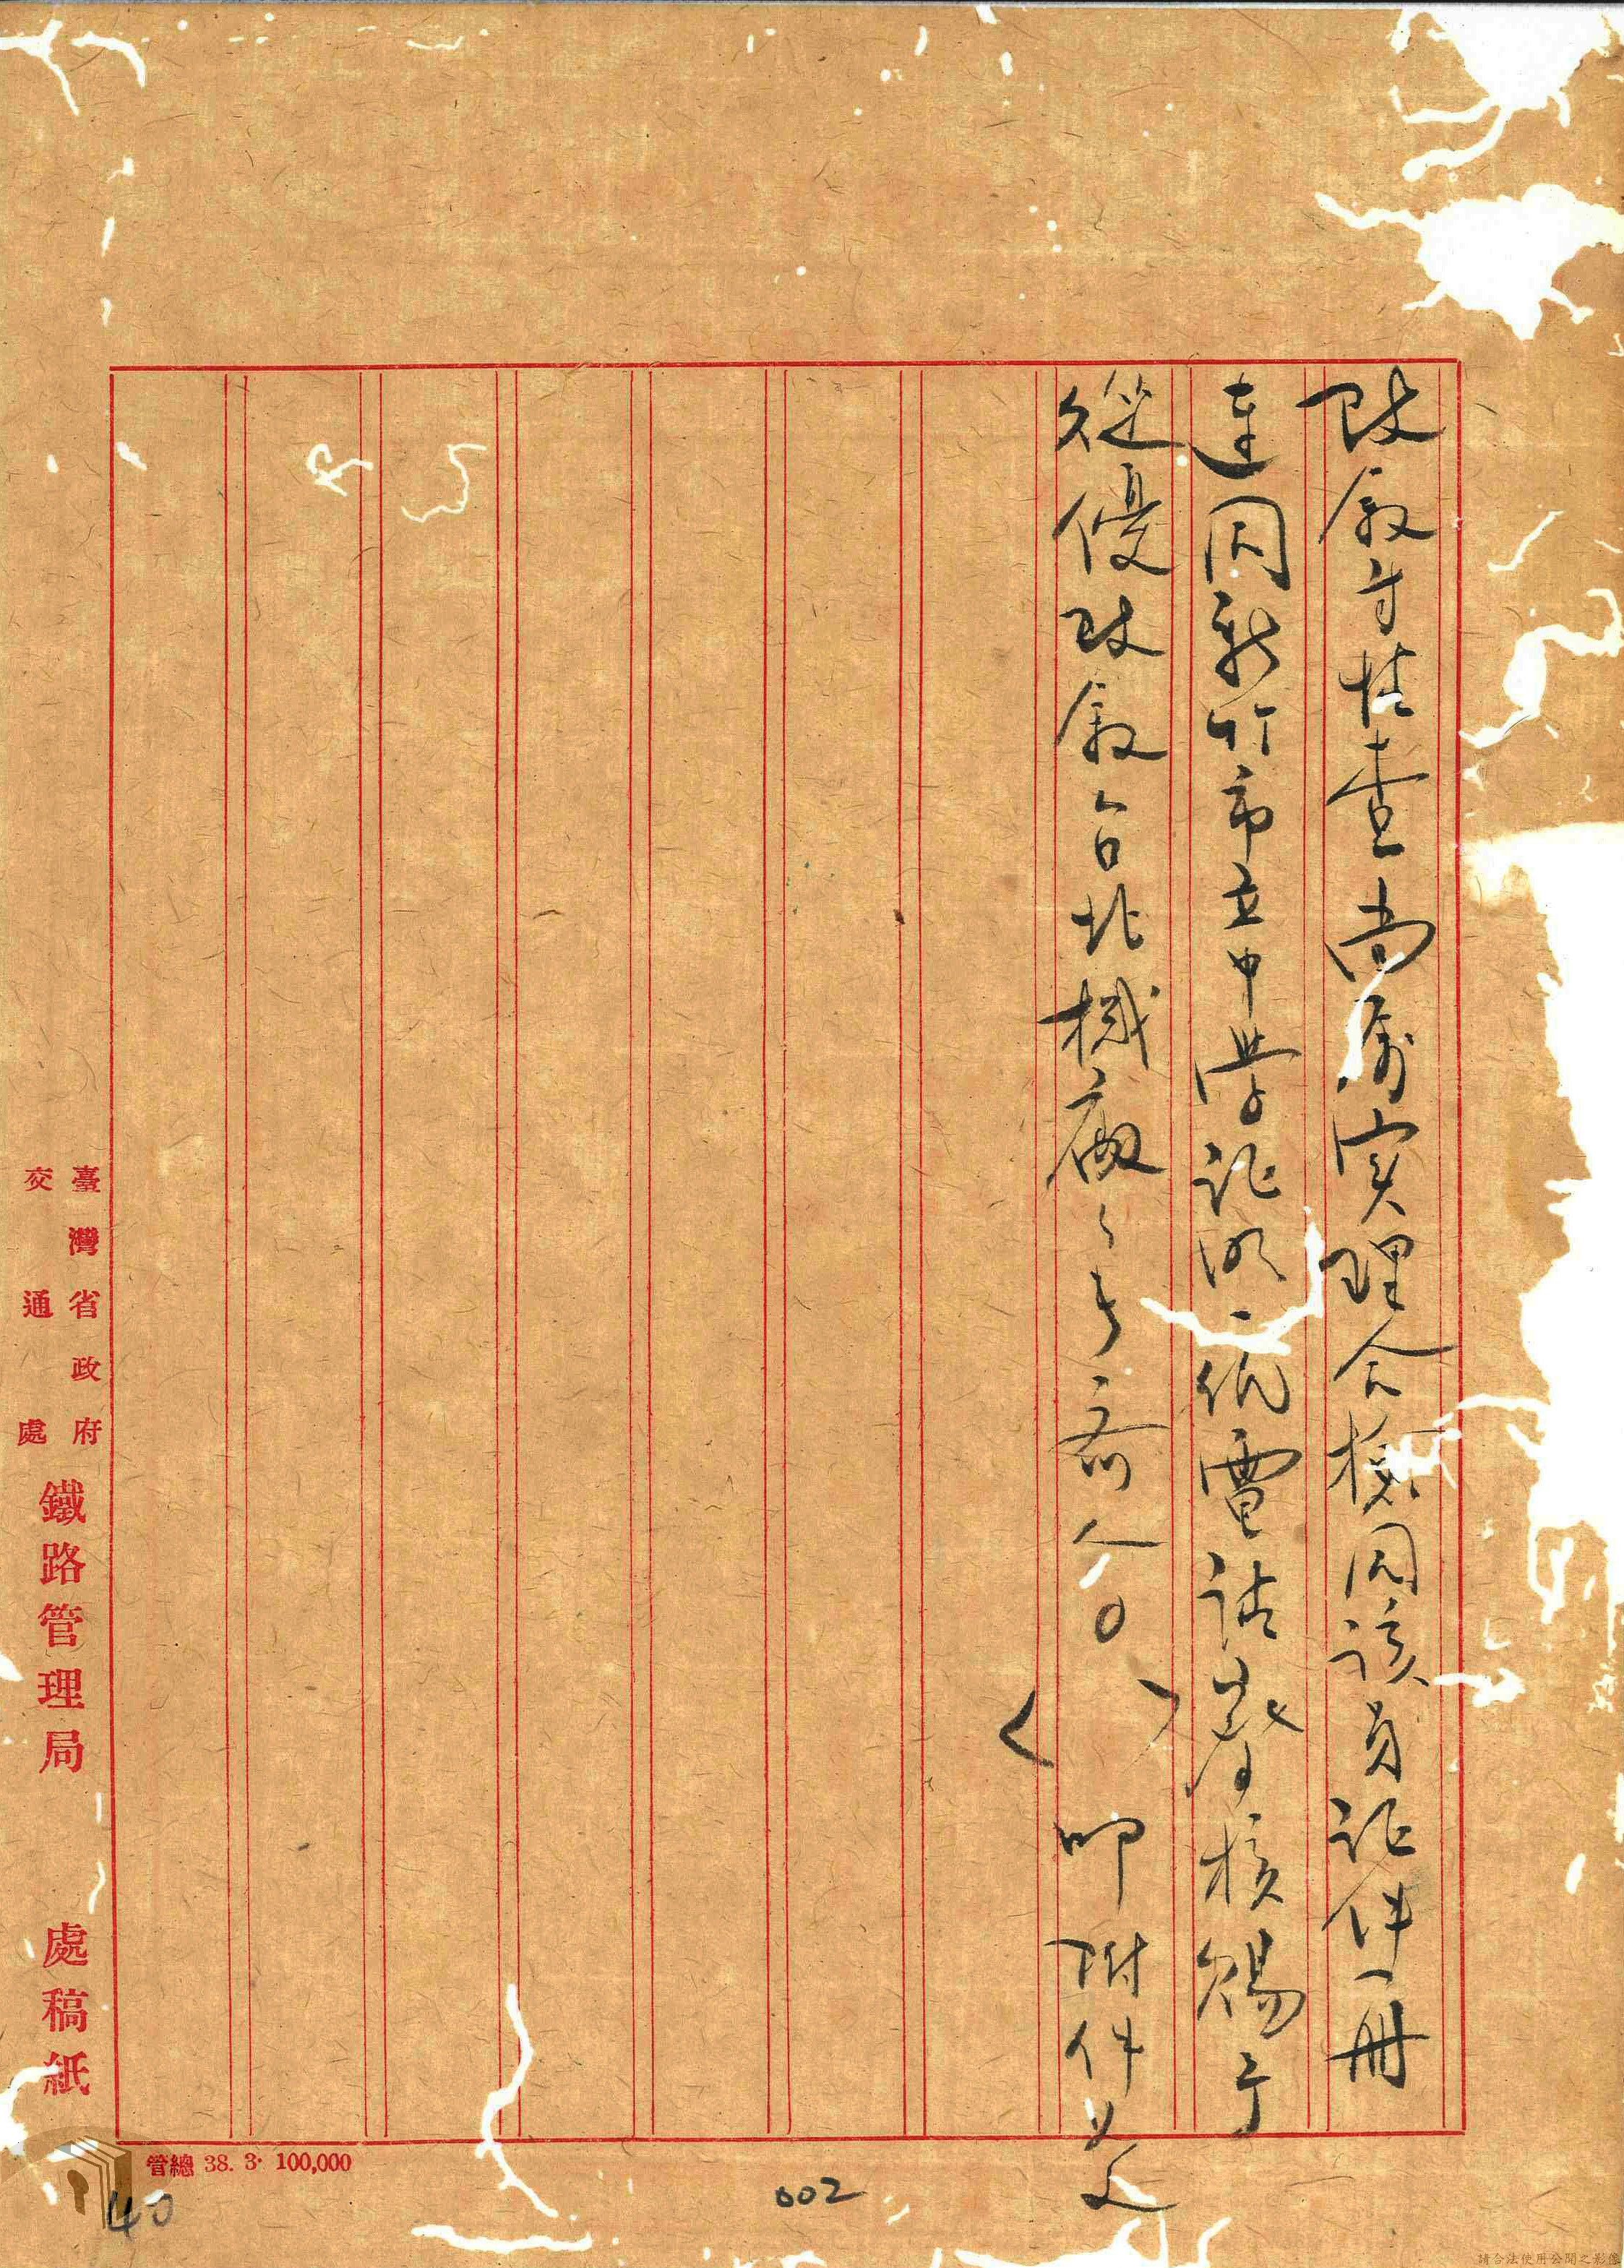 改敘等情查尚屬实理合檢同該員証件一冊
連同新竹市立中學証明一紙電請詧核賜予
從優改敘台北機廠
叩附件並文
臺灣省政府
交通處
鐵路管理局
處稿紙
管總 38. 3. 100,000
002
40
請合法使用公開之影像